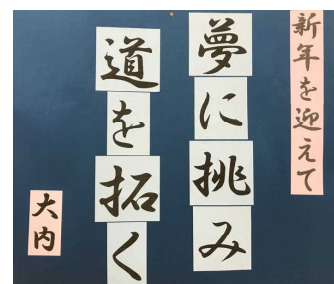 新年を迎えて
夢に挑み
道を拓く
大内